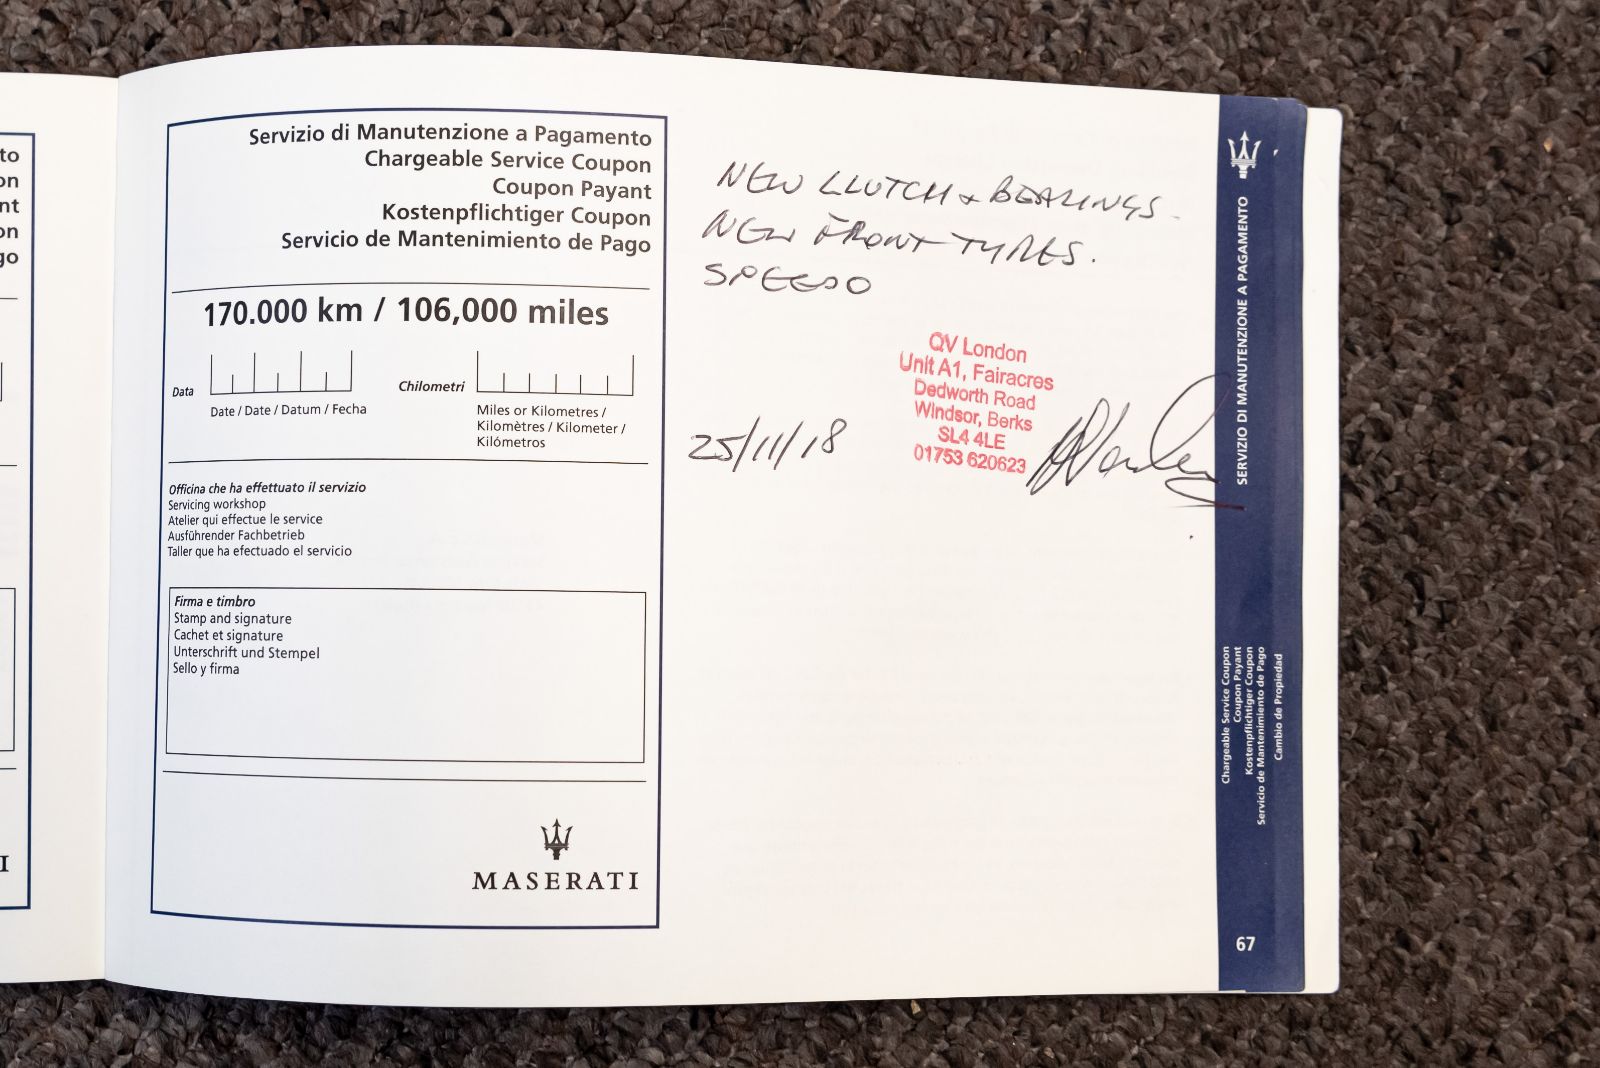 to
on
nt
on
go
I
Servizio di Manutenzione a Pagamento
Chargeable Service Coupon
Coupon Payant
Kostenpflichtiger Coupon
Servicio de Mantenimiento de Pago
170.000 km / 106,000 miles
Data
Date / Date / Datum / Fecha
Chilometri
Miles or Kilometres /
Kilomètres / Kilometer /
Kilómetros
Officina che ha effettuato il servizio
Servicing workshop
Atelier qui effectue le service
Ausführender Fachbetrieb
Taller que ha efectuado el servicio
Firma e timbro
Stamp and signature
Cachet et signature
Unterschrift und Stempel
Sello y firma
MASERATI
NEW CLUTCH & BEARINGS.
NEW FRONT TYRES.
SPEEDO
25/11/18
QV London
Unit A1, Fairacres
Dedworth Road
Windsor, Berks
SL4 4LE
01753 620623
SERVIZIO DI MANUTENZIONE A PAGAMENTO
Chargeable Service Coupon
Coupon Payant
Kostenpflichtiger Coupon
Servicio de Mantenimiento de Pago
Cambio de Propiedad
67